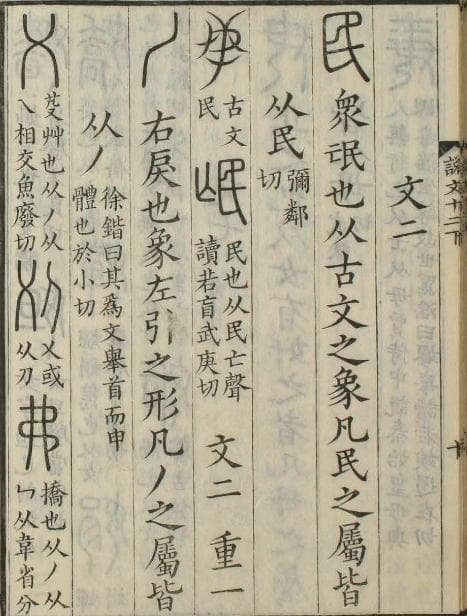 說文十二下
十
文二
民 衆氓也从古文之象凡民之屬皆
从民 彌鄰切
古文民 氓 民也从民亡聲讀若盲武庚切 文二 重一
丿 右戾也象左引之形凡丿之屬皆
从丿 徐鍇曰其爲文舉首而申體也於小切
乂 芟艸也从丿从乀相交魚廢切 刈 乂或从刀 弗 撟也从丿从乀从韋省分